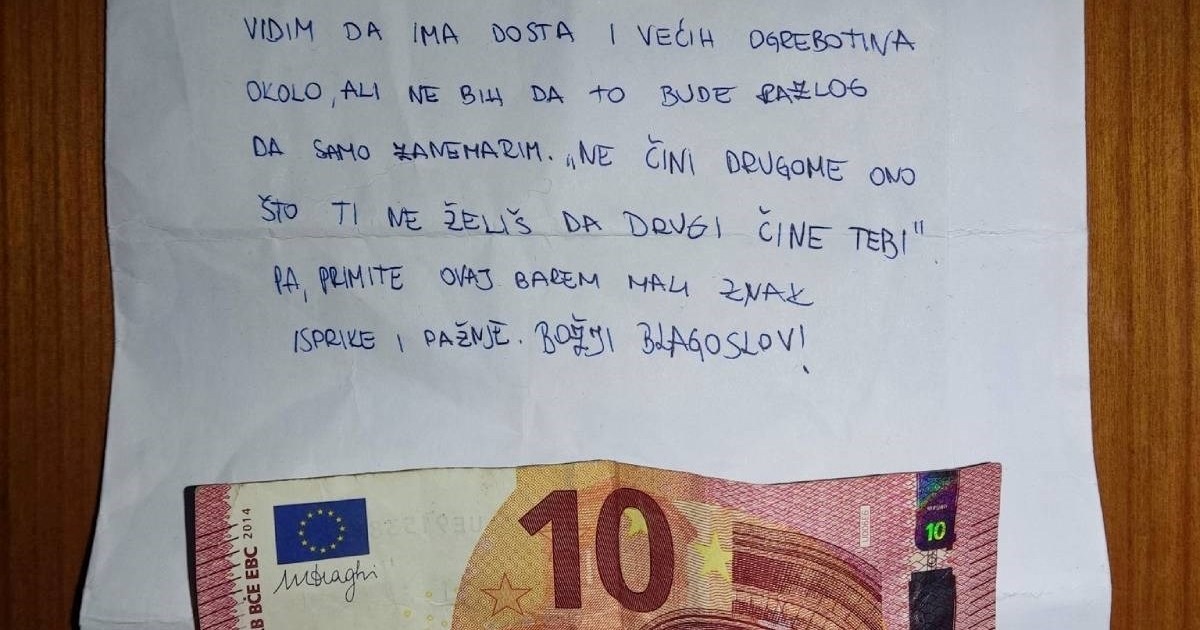 VIDIM DA IMA DOSTA I VEĆIH OGREBOTINA
OKOLO, ALI NE BIH DA TO BUDE RAZLOG
DA SAMO ZANEMARIM. „NE ČINI DRUGOME ONO
ŠTO TI NE ŽELIŠ DA DRUGI ČINE TEBI"
PA, PRIMITE OVAJ BAREM MALI ZNAK
ISPRIKE I PAŽNJE. BOŽJI BLAGOSLOV!
BCE EBC 2014
10
10